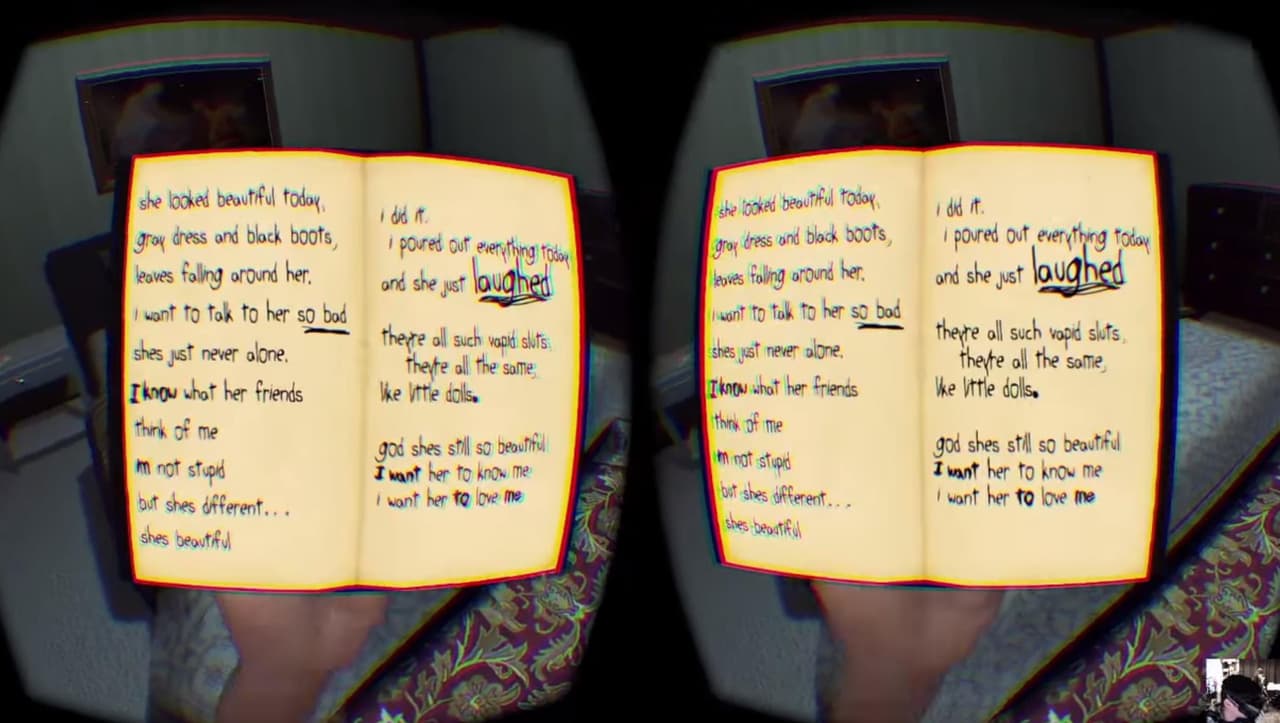 she looked beautiful today,
gray dress and black boots,
leaves falling around her.
i want to talk to her so bad
shes just never alone.
I know what her friends
think of me
im not stupid
but shes different...
shes beautiful
i did it.
i poured out everything today
and she just laughed
they're all such vapid sluts,
they're all the same,
like little dolls.
god shes still so beautiful
I want her to know me
i want her to love me
she looked beautiful today,
gray dress and black boots,
leaves falling around her.
i want to talk to her so bad
shes just never alone.
I know what her friends
think of me
im not stupid
but shes different...
shes beautiful
i did it.
i poured out everything today
and she just laughed
they're all such vapid sluts,
they're all the same,
like little dolls.
god shes still so beautiful
I want her to know me
i want her to love me